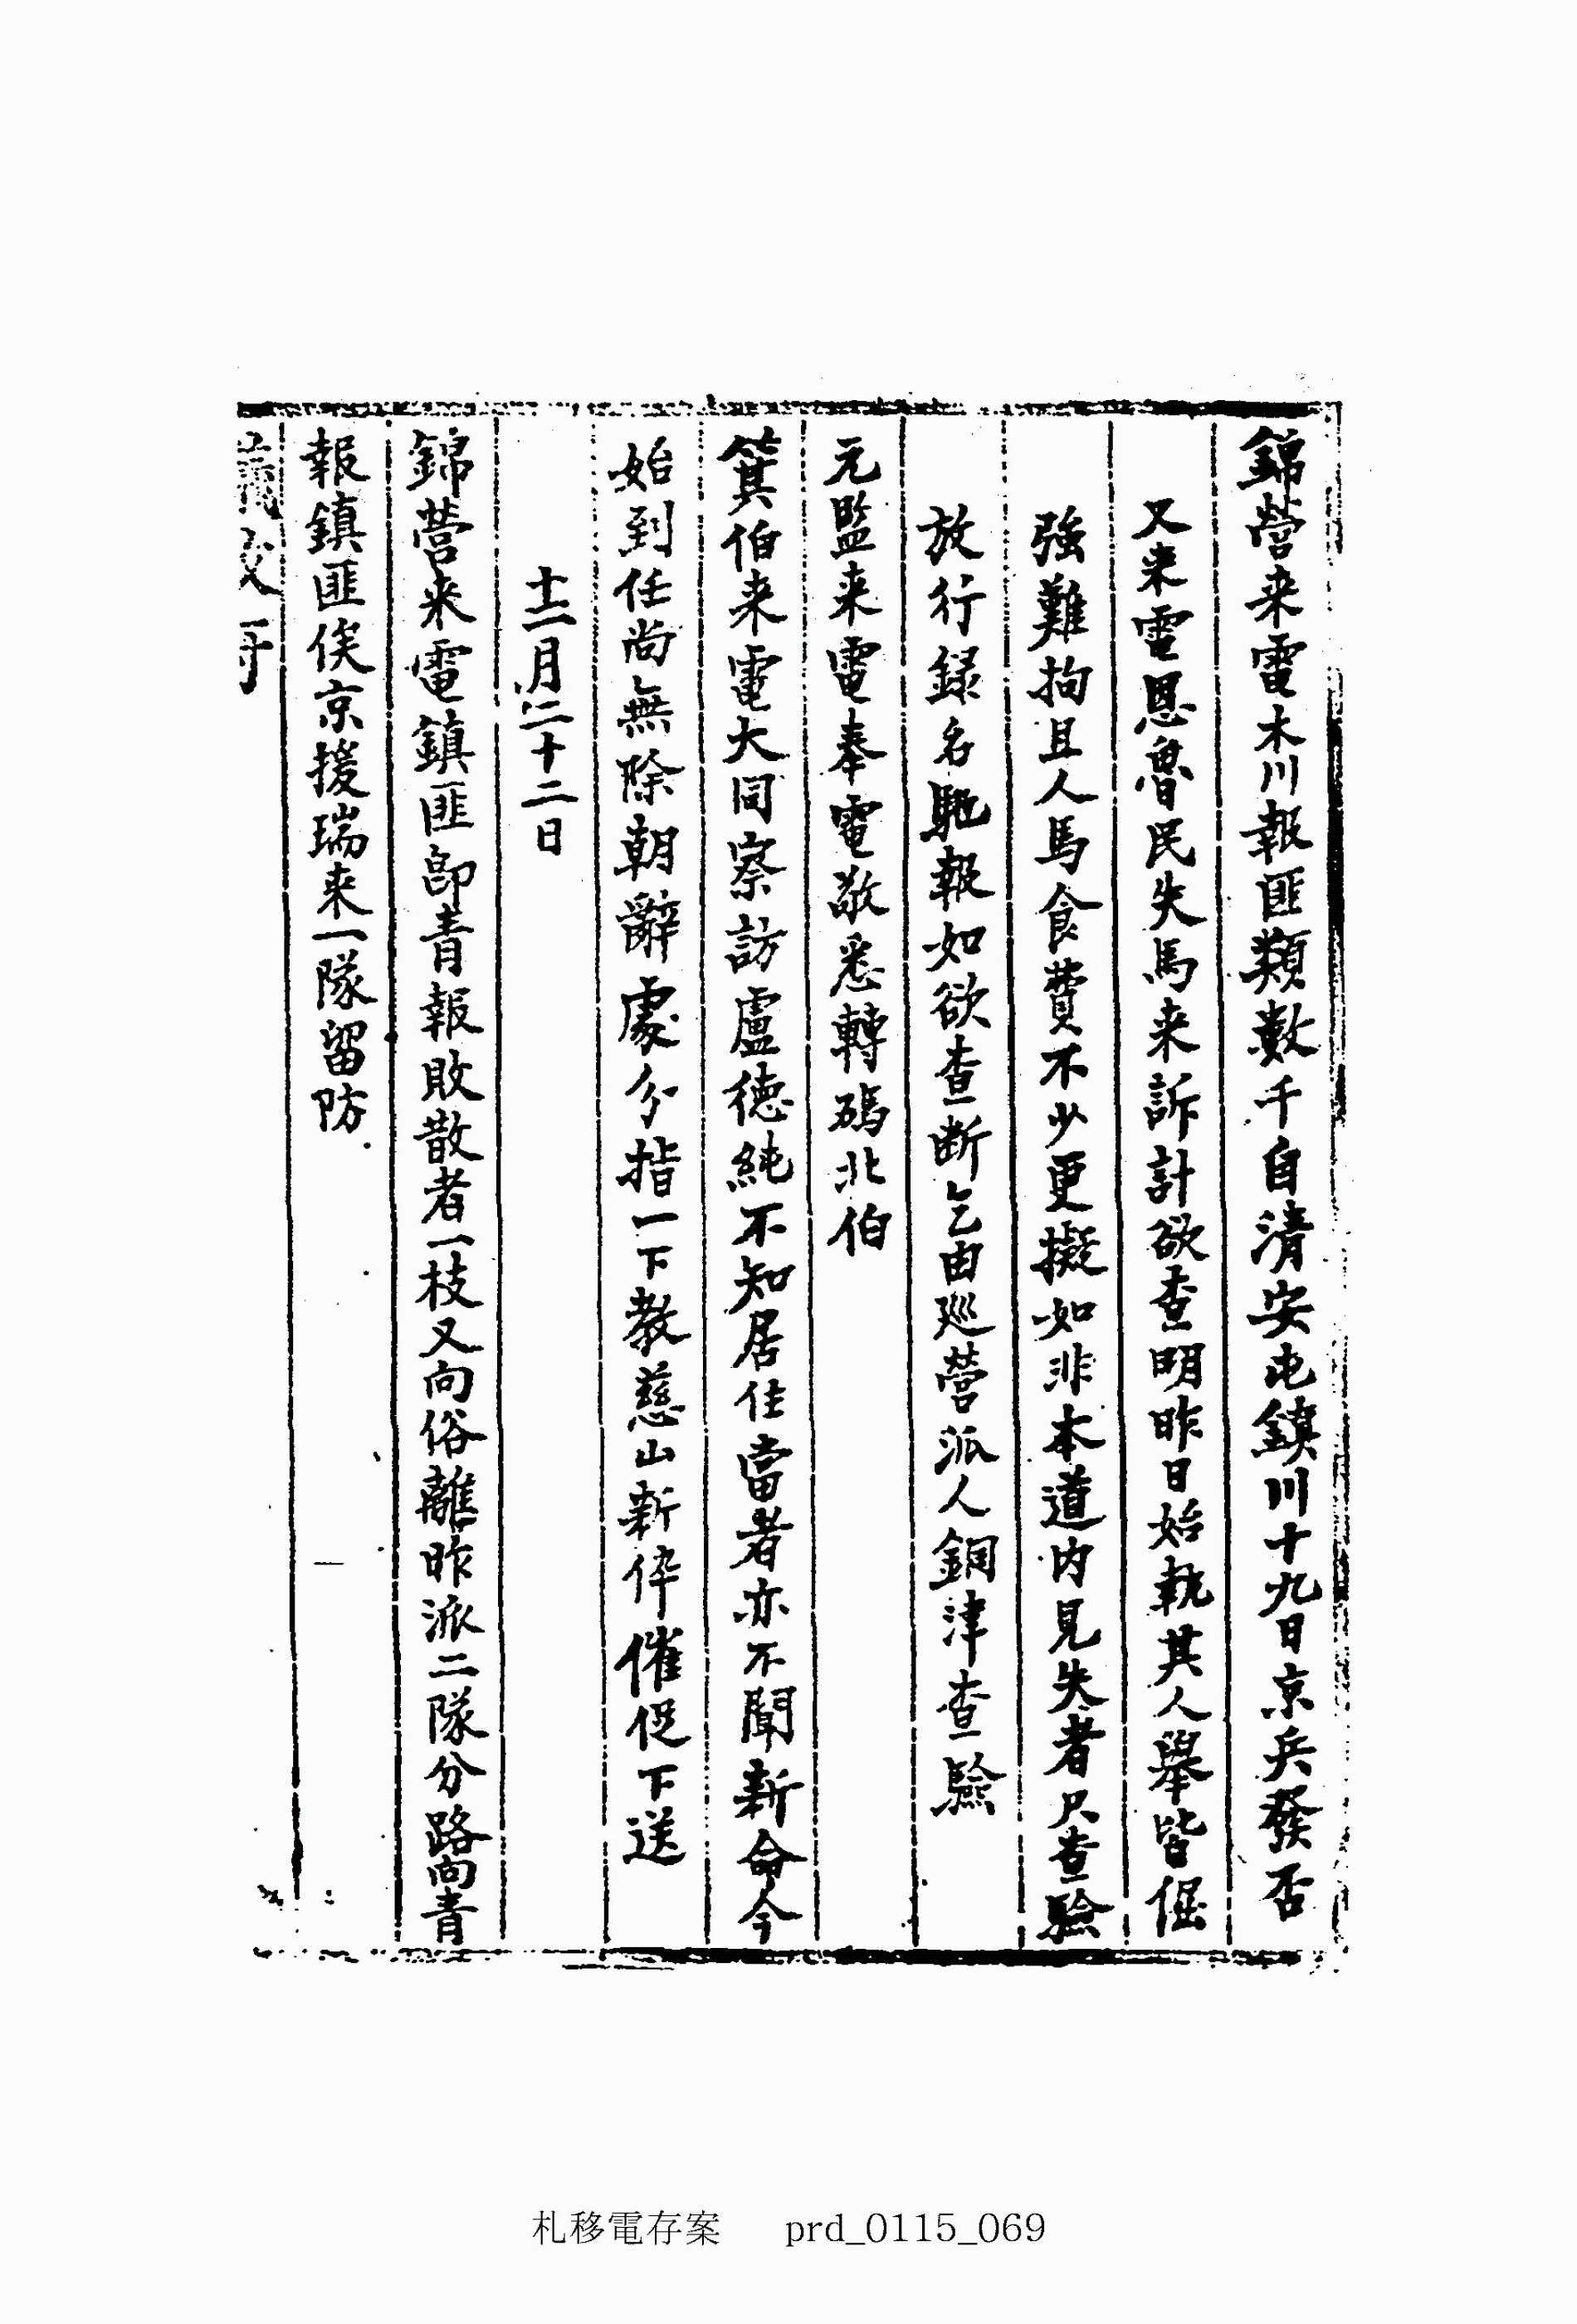 錦營来電木川報匪類數千自清安屯鎮川十九日京兵發否
又来電恩魯民失馬来訴計欲查明昨日始執其人舉皆倔
強難拘且人馬食費不少更擬如非本道內見失者只查驗
放行録名馳報如欲查断乞由廵營派人銅津查驗
元監来電奉電敬悉轉碼北伯
箕伯来電大同察訪盧德純不知居住當者亦不聞新命今
始到任尚無除朝辭處分指一下教慈山新倅催促下送
十二月二十二日
錦營来電鎮匪卽青報敗散者一枝又向俗離昨派二隊分路向青
報鎮匪俟京援瑞来一隊留防
札移電存案 prd_0115_069